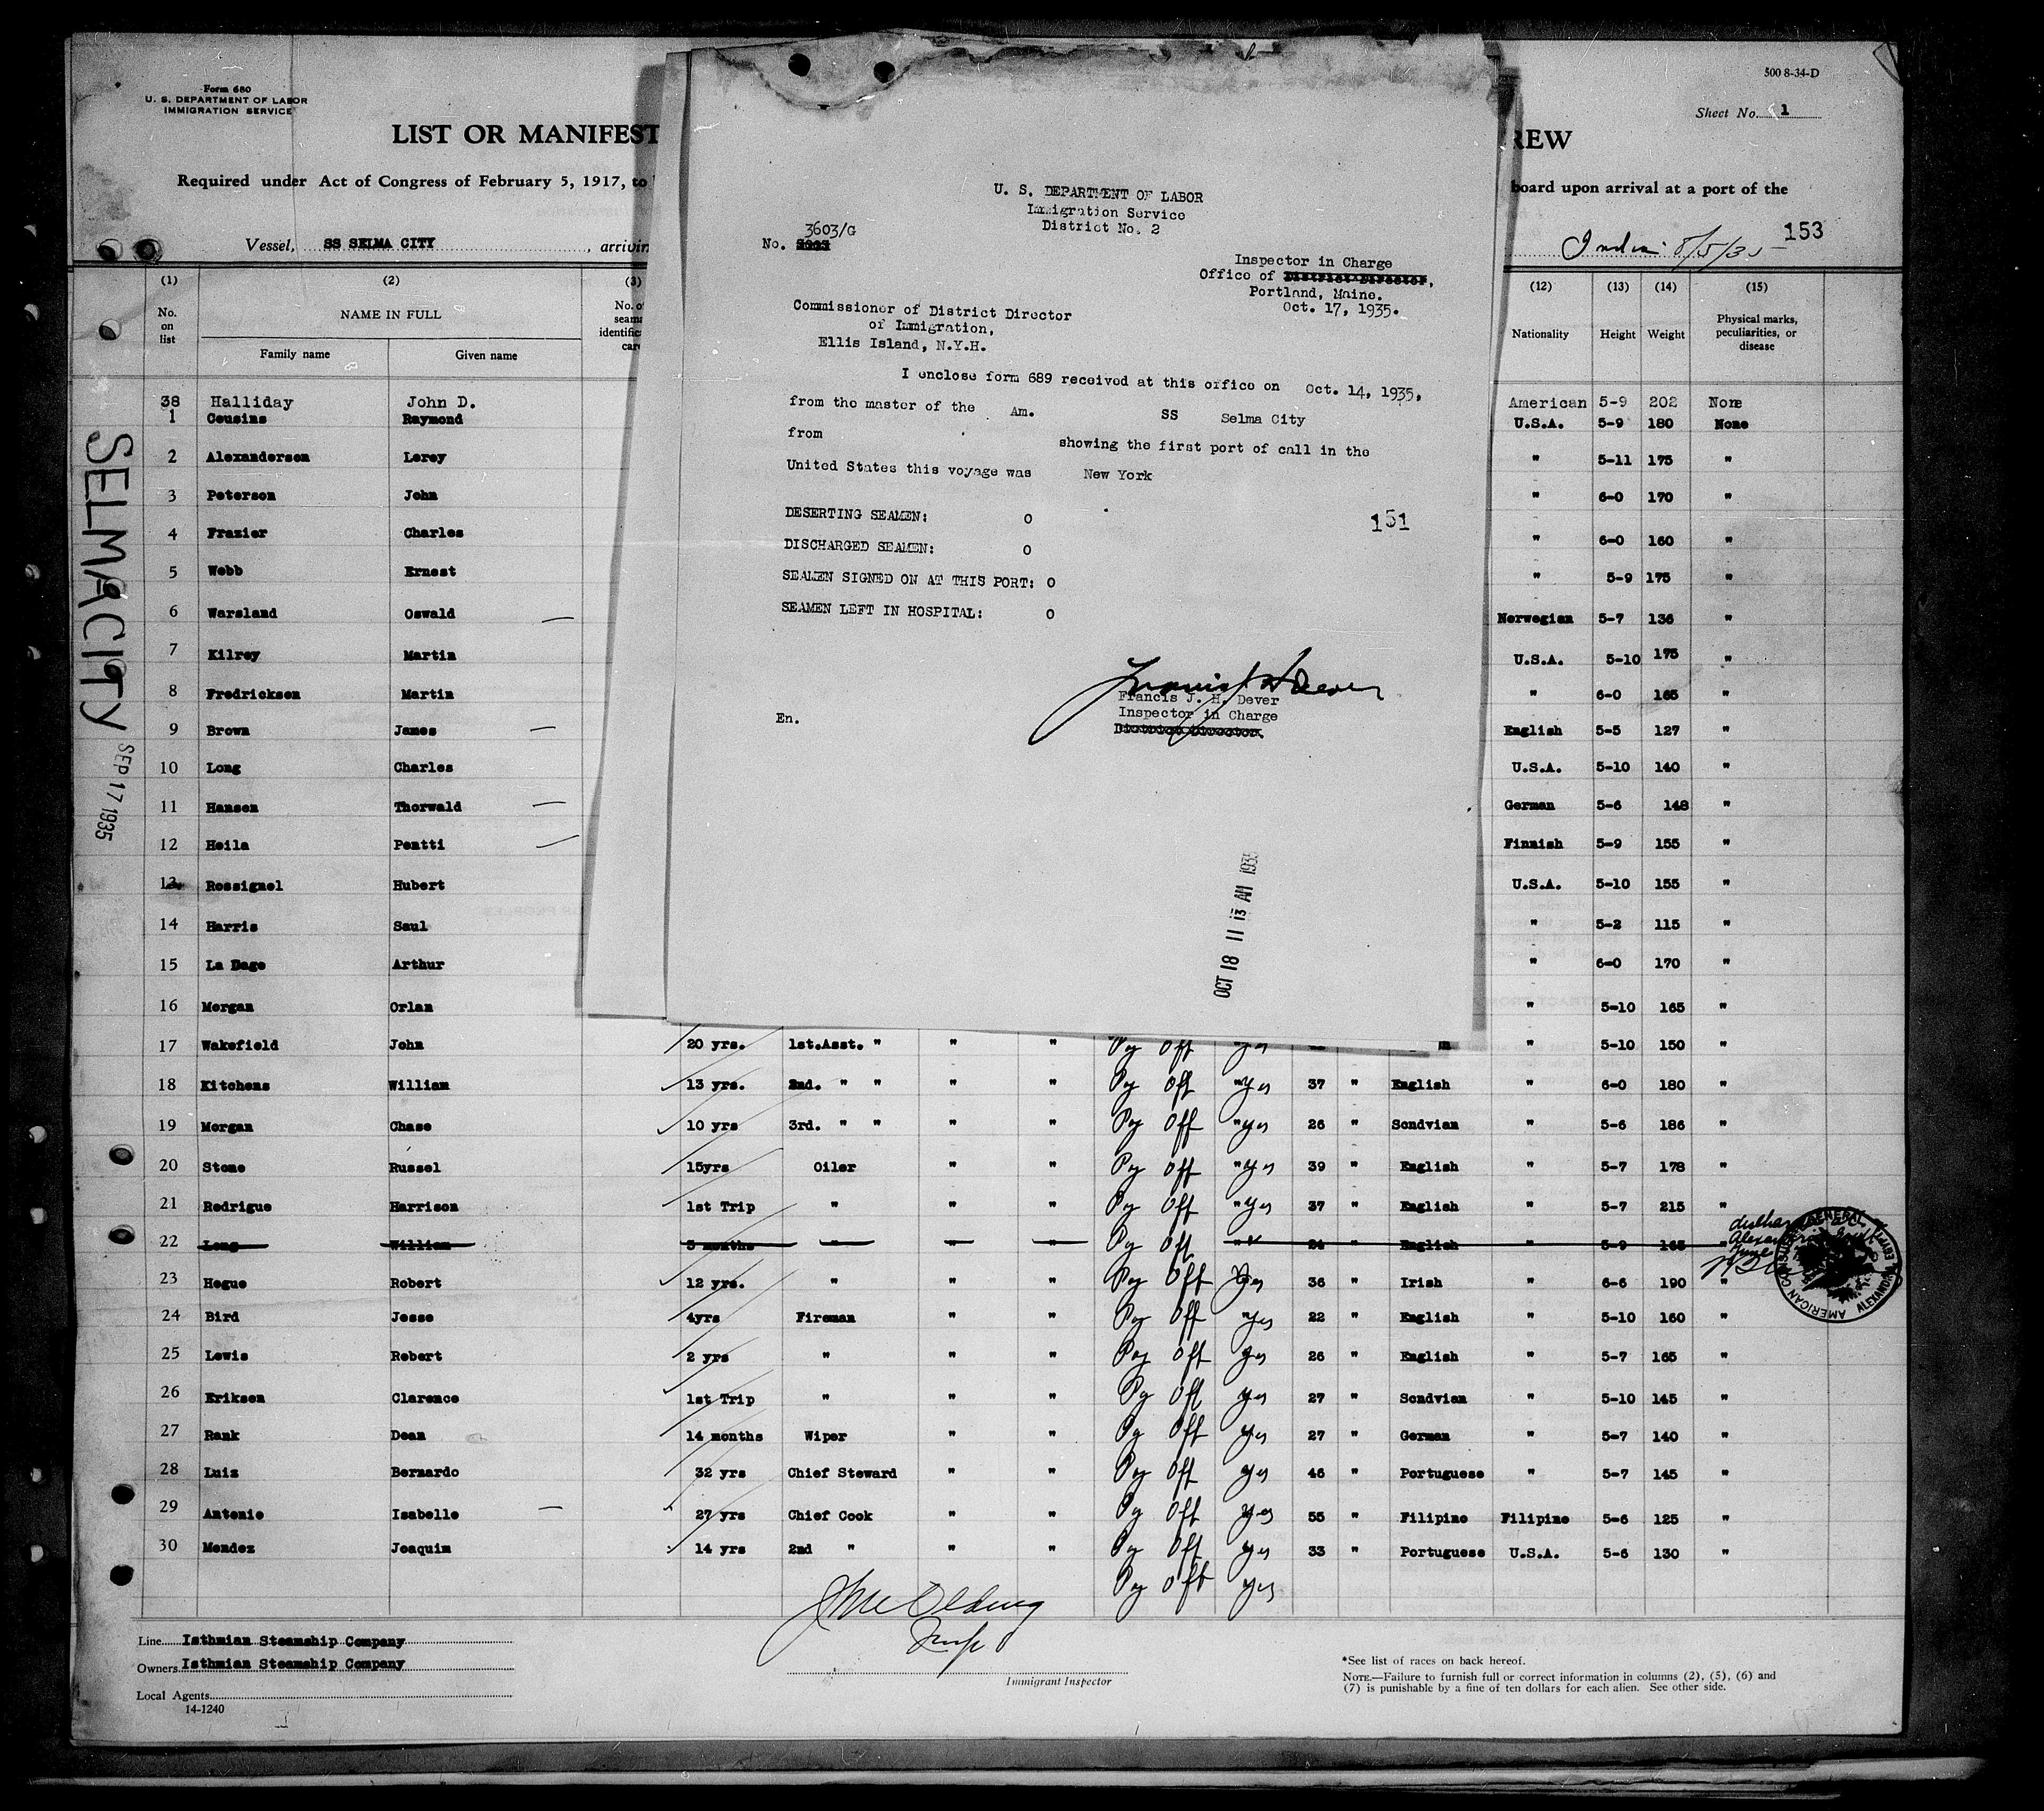 Form 680
U. S. DEPARTMENT OF LABOR
IMMIGRATION SERVICE
500 8-34-D
Sheet No. 1
LIST OR MANIFEST
REW
Required under Act of Congress of February 5, 1917, to
board upon arrival at a port of the
Vessel, SS SELMA CITY, arrivin
India 8/5/35
153
(1) (2) (3) (12) (13) (14) (15)
No. on list
NAME IN FULL
Family name Given name
Nationality Height Weight Physical marks, peculiarities, or disease
38 Halliday John D. American 5-9 202 None
1 Cousins Raymond U.S.A. 5-9 180 None
2 Alexanderson Leroy " 5-11 175 "
3 Peterson John " 6-0 170 "
4 Frazier Charles " 6-0 160 "
5 Webb Ernest " 5-9 175 "
6 Warsland Oswald Norwegian 5-7 136 "
7 Kilroy Martin U.S.A. 5-10 175 "
8 Fredrickson Martin " 6-0 165 "
9 Brown James English 5-5 127 "
10 Long Charles U.S.A. 5-10 140 "
11 Hansen Thorwald German 5-6 148 "
12 Heila Pentti Finnish 5-9 155 "
13 Rossignol Hubert U.S.A. 5-10 155 "
14 Harris Saul " 5-2 115 "
15 La Dage Arthur " 6-0 170 "
16 Morgan Orlan " 5-10 165 "
17 Wakefield John 20 yrs. 1st.Asst. " " " Pay Off yes " 5-10 150 "
18 Kitchens William 13 yrs. 2nd. " " " " Pay Off "yes 37 " English " 6-0 180 "
19 Morgan Chase 10 yrs 3rd. " " " " Pay Off "yes 26 " Scndvian " 5-6 186 "
20 Stone Russel 15yrs Oiler " " Pay Off "yes 39 " English " 5-7 178 "
21 Rodrigue Harrison 1st Trip " " " Pay Off "yes 37 " English " 5-7 215 "
22 Long William 3 months " " " Pay Off " 24 " English " 5-9 165 "
23 Hogue Robert 12 yrs. " " " Pay Off yes 36 " Irish " 6-6 190 "
24 Bird Jesse 4yrs Fireman " " Pay Off "yes 22 " English " 5-10 160 "
25 Lewis Robert 2 yrs " " " Pay Off yes 26 " English " 5-7 165 "
26 Eriksen Clarence 1st Trip " " " Pay Off yes 27 " Scndvian " 5-10 145 "
27 Rank Dean 14 months Wiper " " Pay Off yes 27 " German " 5-7 140 "
28 Luiz Bernardo 32 yrs Chief Steward " " Pay Off yes 46 " Portuguese " 5-7 145 "
29 Antonio Isabelle 27 yrs Chief Cook " " Pay Off yes 55 " Filipino Filipino 5-6 125 "
30 Mendez Joaquim 14 yrs 2nd " " " Pay Off yes 33 " Portuguese U.S.A. 5-6 130 "
Pay Off yes
SELMA CITY
SEP 17 1935
AMERICAN CONSULATE GENERAL
ALEXANDRIA EGYPT
Line Isthmian Steamship Company
Owners Isthmian Steamship Company
Local Agents
14-1240
Immigrant Inspector
*See list of races on back hereof.
NOTE.—Failure to furnish full or correct information in columns (2), (5), (6) and
(7) is punishable by a fine of ten dollars for each alien. See other side.
U. S. DEPARTMENT OF LABOR
Immigration Service
District No. 2
3603/G
No.
Inspector in Charge
Office of District Director,
Portland, Maine.
Oct. 17, 1935.
Commissioner of District Director
of Immigration,
Ellis Island, N.Y.H.
I enclose form 689 received at this office on Oct. 14, 1935,
from the master of the Am. SS Selma City
from showing the first port of call in the
United States this voyage was New York
DESERTING SEAMEN: 0
151
DISCHARGED SEAMEN: 0
SEAMEN SIGNED ON AT THIS PORT: 0
SEAMEN LEFT IN HOSPITAL: 0
Francis J. H. Dever
Inspector in Charge
District Director
En.
OCT 18 11 13 AM 1935